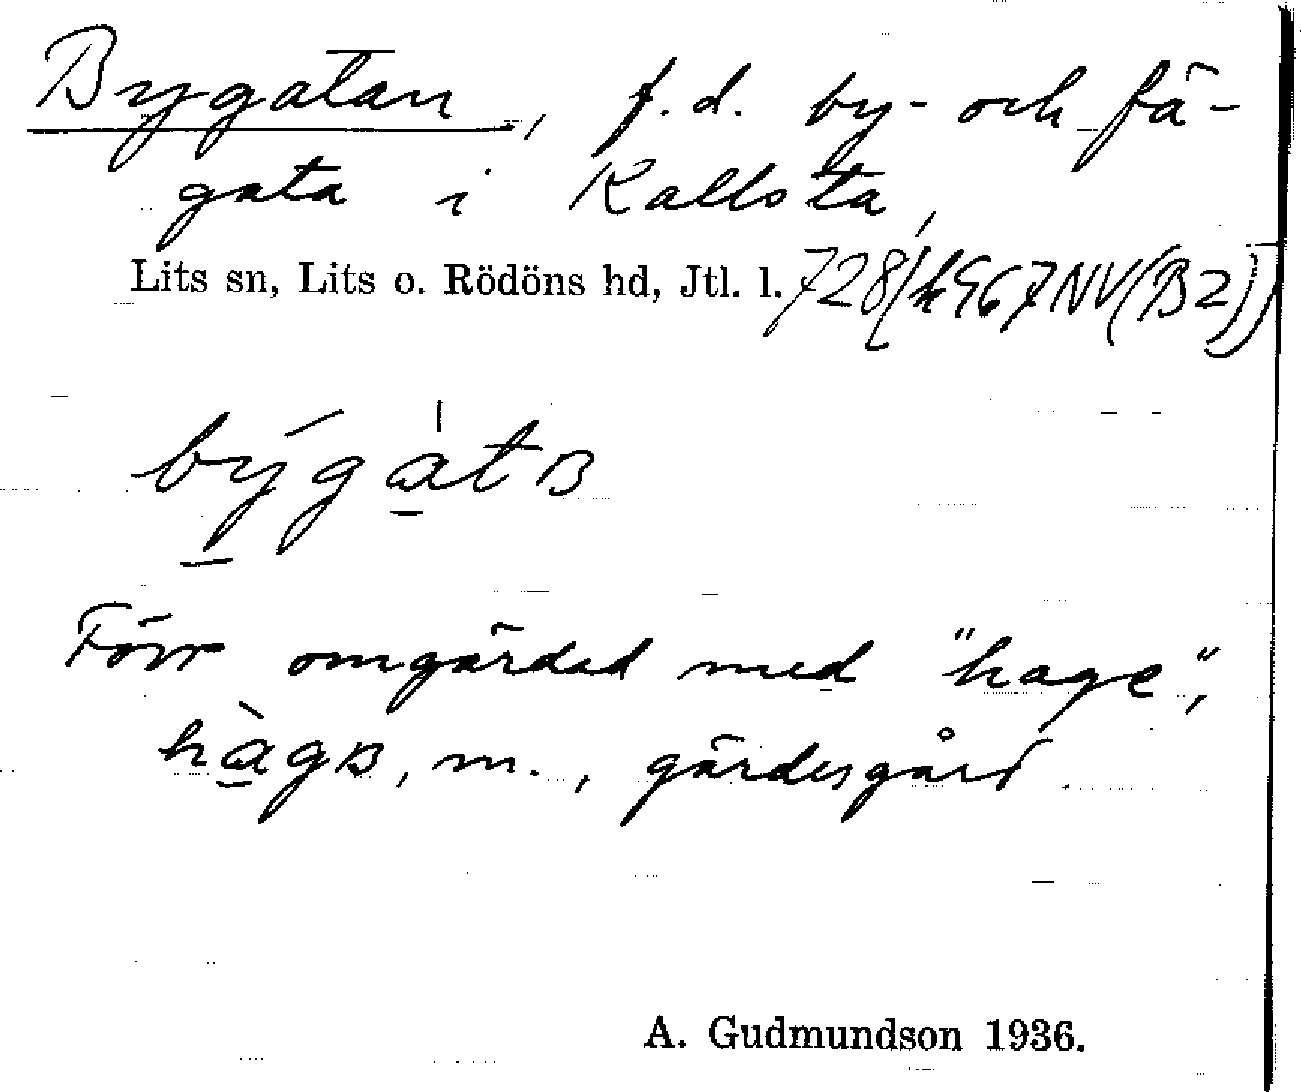 Bygatan, f.d. by- och fä-
gata i Kallsta,
Lits sn, Lits o. Rödöns hd, Jtl. l. 728(k967NV(B2))
býgàtʙ
Förr omgärdad med "hage",
hàgʙ, m., gärdesgård.
A. Gudmundson 1936.